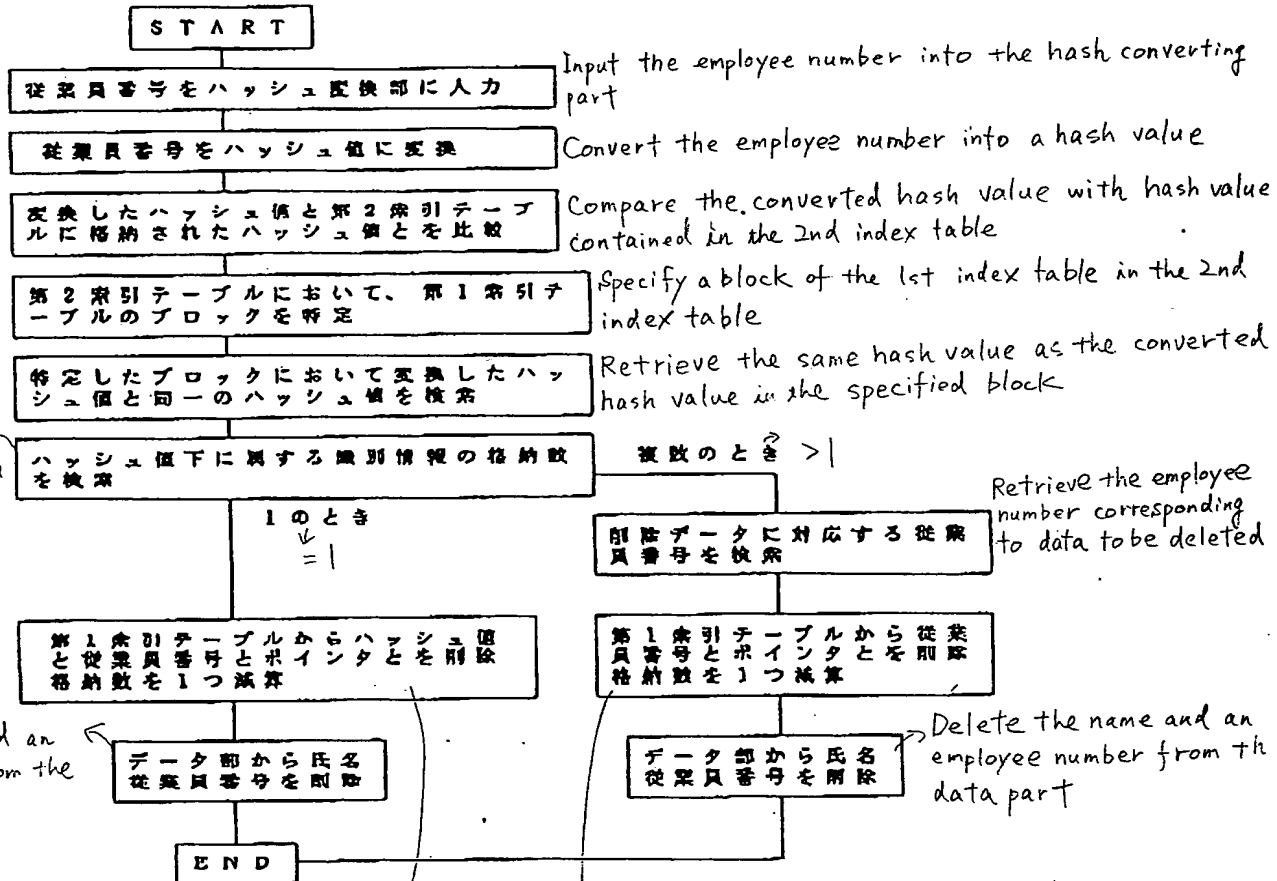 START
従業員番号をハッシュ変換部に入力
Input the employee number into the hash converting
part
従業員番号をハッシュ値に変換
Convert the employee number into a hash value
変換したハッシュ値と第2索引テーブ
ルに格納されたハッシュ値とを比較
Compare the converted hash value with hash value
contained in the 2nd index table
第2索引テーブルにおいて、第1索引テ
ーブルのブロックを特定
Specify a block of the 1st index table in the 2nd
index table
特定したブロックにおいて変換したハッ
シュ値と同一のハッシュ値を検索
Retrieve the same hash value as the converted
hash value in the specified block
ハッシュ値下に属する識別情報の格納数
を検索
複数のとき >1
1のとき
=1
削除データに対応する従業
員番号を検索
Retrieve the employee
number corresponding
to data to be deleted
第1索引テーブルからハッシュ値
と従業員番号とポインタとを削除
格納数を1つ減算
第1索引テーブルから従業
員番号とポインタとを削除
格納数を1つ減算
an
om the
データ部から氏名
従業員番号を削除
データ部から氏名
従業員番号を削除
Delete the name and an
employee number from th
data part
END